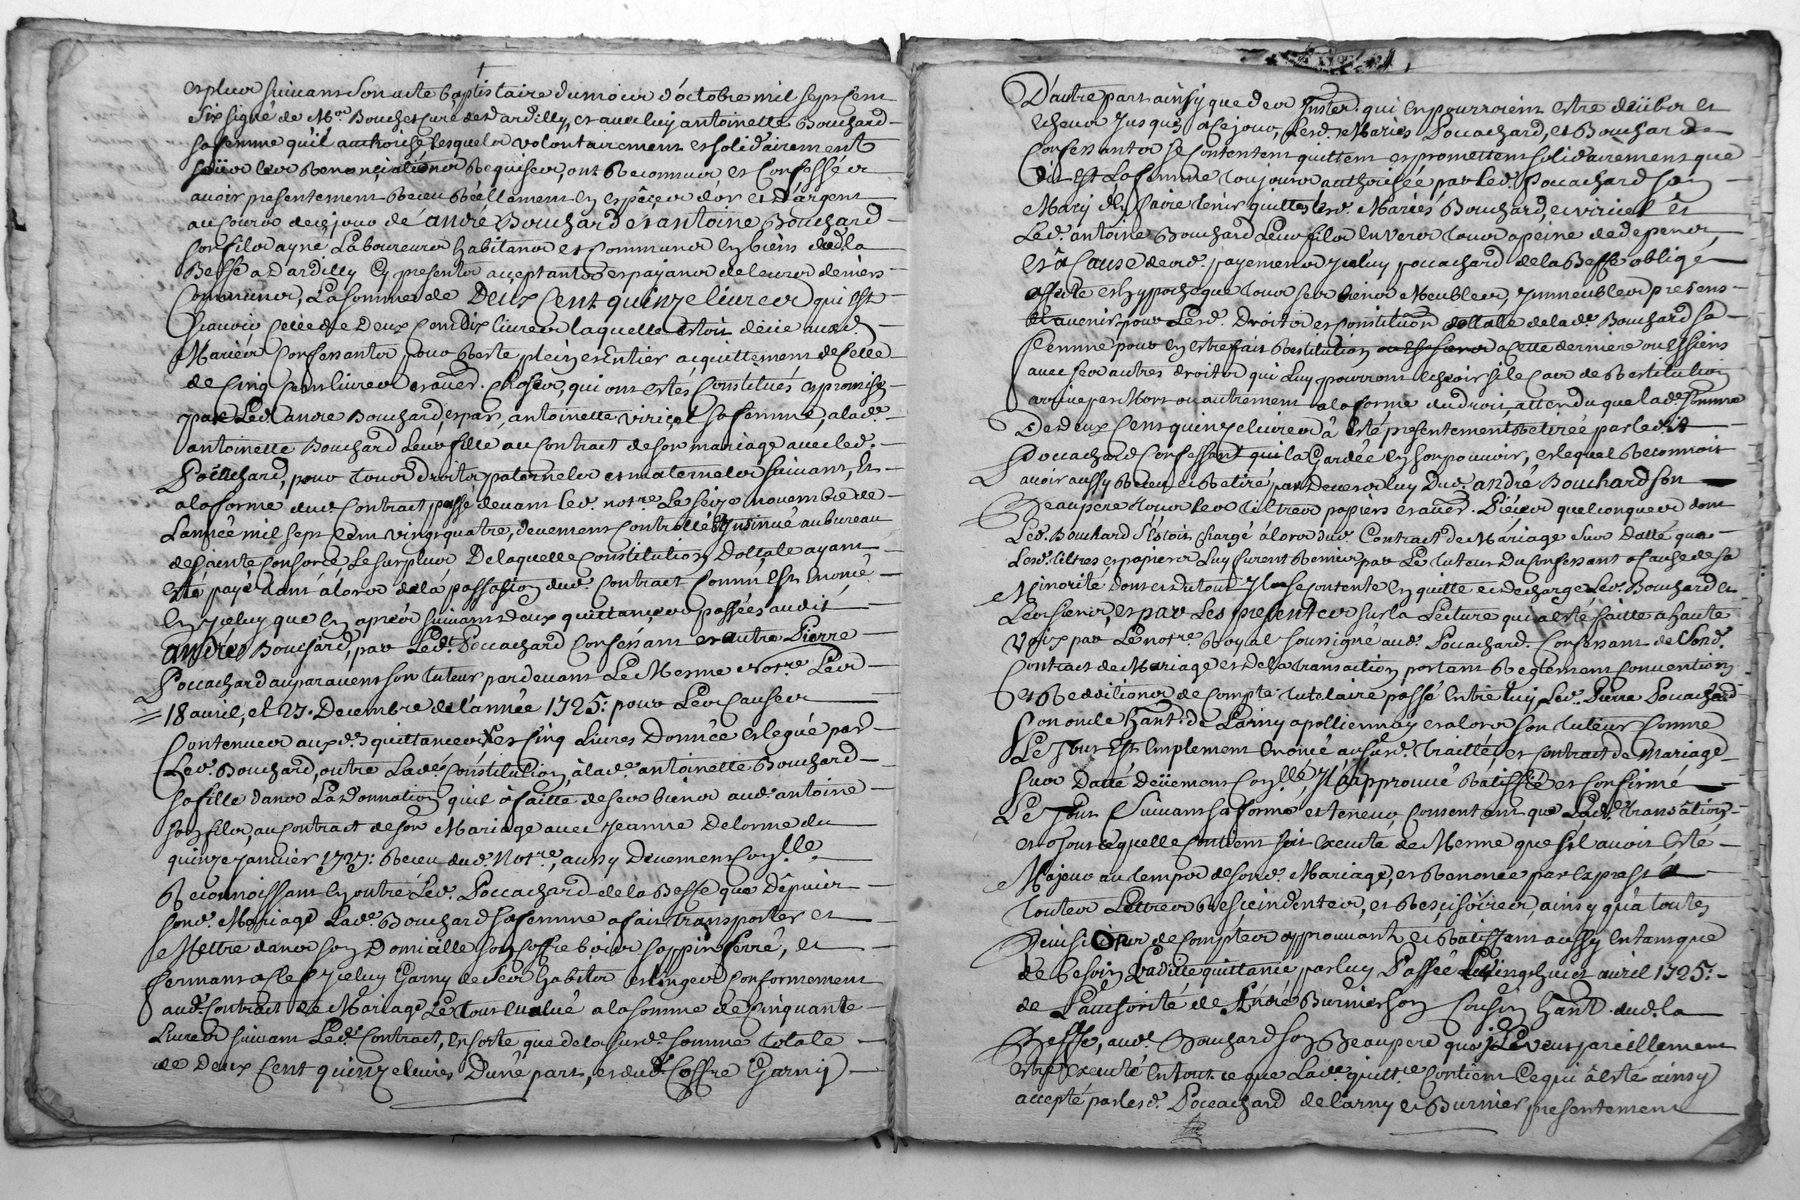 et plus suivant son acte baptistaire du mois d'octobre mil sept cent
six signé de Mre Bouchet curé de Dardilly, et avec luy antoinette Bouchard
sa femme qu'il authorise lesquels volontairement et solidairement
sous les renonciations requises, ont reconnus et confessés
avoir presentement receu réellement en espèces d'or et d'argent
au cours de ce jour de andré Bouchard et antoine Bouchard
son fils ayné Laboureurs habitans et communs en biens dud. la
Beffe a Dardilly cy presents acceptants et payans de leurs deniers
communs, La somme de Deux Cent quinze livres qui est
scavoir celle de Deux cent Dix livres laquelle estoit deüe aux d.
Mariés confessants pour reste plein et entier acquittement de celle
de Cinq cent livres et autres choses qui ont estés Constitués et promises
par Led. andre Bouchard, et par antoinette viricel sa femme, a lad.
antoinette Bouchard leur fille au contract de son mariage avec led.
Pocachard, pour tous droits paternels et maternels suivant, et
a la forme dud. contract passé devant led. notre Le seize novembre de
L'année mil sept cent vingt quatre, deuement controllé et Insinué au bureau
de sainte consorce, Le surplus De laquelle constitution Dottale ayant
esté payé tant a lors de la passation dud. Contract comm' est Enoncé
en Iceluy que en après suivant Deux quittances passées audit
andré Bouchard, par Led. Pocachard confessant et autre Pierre
Pocachard auparavent son tuteur pardevant Led. Mesme Notre Les
18 avril, et 27. Decembre de l'année 1725: pour Les causes
Contenues auxd. quittances et Cinq Livres Donnée et legué par
Led. Bouchard, outre Lade Constitution, a lad. antoinette Bouchard
sa fille dans La Donnation qu'il a faitte de ses biens aud. antoine
son fils, au contract de son Mariage avec Jeanne Delorme du
quinze janvier 1727: receu dud. Notre, aussy Deuement Coñllé
Reconnoissant en outre Led. Pocachard de la Beffe que Dépuis
sond. Mariage Lad. Bouchard sa femme a fait transporter et
Mettre dans son Domicille son coffre bois sappin ferré, et
fermant a clef Iceluy Garny de ses habits et linges conformement
aud. Contract de Mariage Le tout evalué a la somme de Cinquante
Livres suivant Led. Contract, en sorte que de la susd. somme totale
de Deux Cent quinze livres D'une part, et dud. Coffre Garny
D'autre part ainsy que des Interests qui en pourroient estre deübs et
echeus Jusques a ce jour, Lesd. Mariés Pocachard, et Bouchard
Confessants se contentent quittent et promettent solidairement que
dit est La femme toujours authorisée par Led. Pocachard son
Mary d'en faire tenir quittes lesd. Mariés Bouchard, et viricel et
Led. antoine Bouchard Leur fils envers tous a peine de depens,
et a Cause desd. payements Iceluy pocachard de la Beffe oblige
affecte et hypotheque tous ses biens Meubles, Immeubles presens
et avenir pour Lesd. Droits et constitution dottalle de lad. Bouchard sa
femme pour en estre fait restitution a cette derniere ou es siens
avec ses autres droits qui Luy pourront echeoir si le cas de restitution
arrive par Mort ou autrement a la forme du droit, attendu que lad. somme
De deux Cent quinze livres a esté presentement retirée par led.
Pocachard Confessant qui la Gardée en son pouvoir, et lequel reconnoit
avoir aussy receu et retiré par Devers luy Dud. andré Bouchard son
Beaupere tous les tiltres papiers et autres Pièces quelconques dont
Led. Bouchard s'estoit chargé a lors dud. Contract de Mariage sus datté que
Lesd. tiltres et papiers Luy furent remis par Le tuteur Du confessant a cause de sa
Minorité dont et du tout Il se contente en quitte et decharge Led. Bouchard et
Les siens, et par Les presentes sur la Lecture qui a esté faitte a haute
Voix par Le notre Royal soussigné aud. Pocachard Confessant de sond.
Contract de Mariage et de la transaction portant Reglement Convention
et Redditions de compte tutelaire passé entre luy, Led. Pierre Pocachard
son oncle habt. de Larny a polliennay et a lors son tuteur comme
Le Tout est emplement enoncé au susd. Traitté, et contract de Mariage
sus Datté Deüement Coñllé, Il a approuvé Ratiffié et confirmé
Le Tout suivant sa forme et teneur consentant que Lad. transaction
et tout ce quelle contient soit executé de Mesme que s'il avoit esté
Majeur au temps de sond. Mariage, et renoncé par exprest a
toutes Lettres rescindentes, et rescisoires, ainsy qu'a toutes
revisions de comptes approuvant et Ratiffiant aussy en tant que
de besoin Ladite quittance par luy Passée Le vingt huict avril 1725:
de L'authorité de André Burnier son Cousin habt. dud. la
Beffe, aud. Bouchard son Beaupere qu'il veut pareillement
estre executé en tout ce que Lad. quittce contient Ce qui a esté ainsy
accepté par lesd. Pocachard de larny et Burnier, presentement